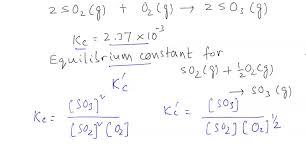 2 SO₂(g) + O₂(g) → 2 SO₃(g)
Kc = 2.37 × 10⁻³
Equilibrium constant for
SO₂(g) + ½O₂(g)
→ SO₃(g)
Kc'
Kc = [SO₃]² / [SO₂]²[O₂]
Kc' = [SO₃] / [SO₂][O₂]^1/2